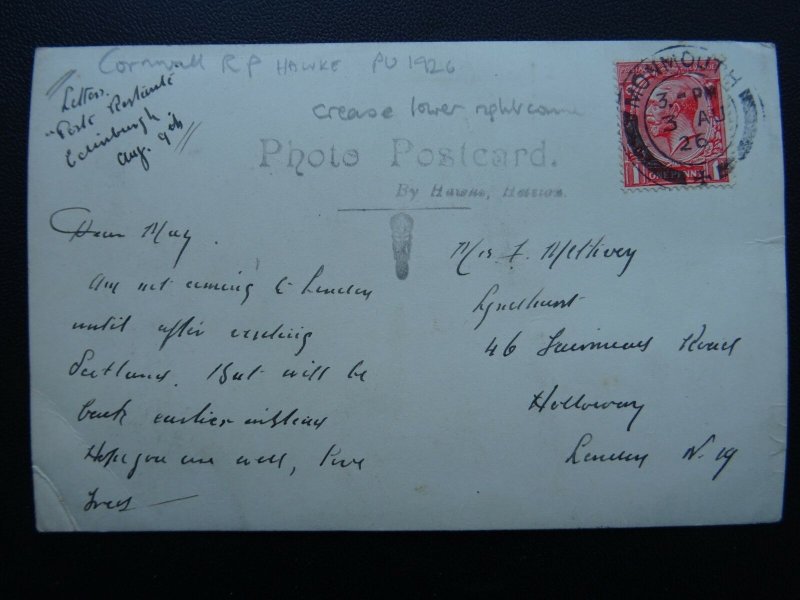 Cornwall R P HAWKE PU 1926
crease lower right corner
Letters.
"Poste Restante
Edinburgh
Aug. 9th"
Photo Postcard.
By Hawke, Helston.
MONMOUTH
3 - PM
3 AU
26
ONE PENNY
Dear May.
Am not coming to London
until after visiting
Scotland. But will be
back earlier instead
Hope you are well, Love
Mrs F.
Lyndhurst
46 Road
Holloway
London N. 19